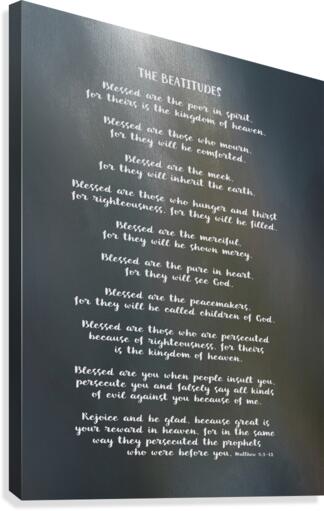 THE BEATITUDES
Blessed are the poor in spirit,
for theirs is the kingdom of heaven.
Blessed are those who mourn,
for they will be comforted.
Blessed are the meek,
for they will inherit the earth.
Blessed are those who hunger and thirst
for righteousness, for they will be filled.
Blessed are the merciful,
for they will be shown mercy.
Blessed are the pure in heart,
for they will see God.
Blessed are the peacemakers,
for they will be called children of God.
Blessed are those who are persecuted
because of righteousness, for theirs
is the kingdom of heaven.
Blessed are you when people insult you,
persecute you and falsely say all kinds
of evil against you because of me.
Rejoice and be glad, because great is
your reward in heaven, for in the same
way they persecuted the prophets
who were before you. Matthew 5:3-12